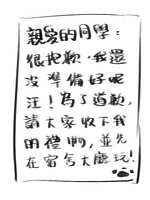 親愛的同學：
很抱歉，我還
沒準備好呢
汪！為了道歉，
請大家收下我
的禮物，並先
在宿舍大廳玩！